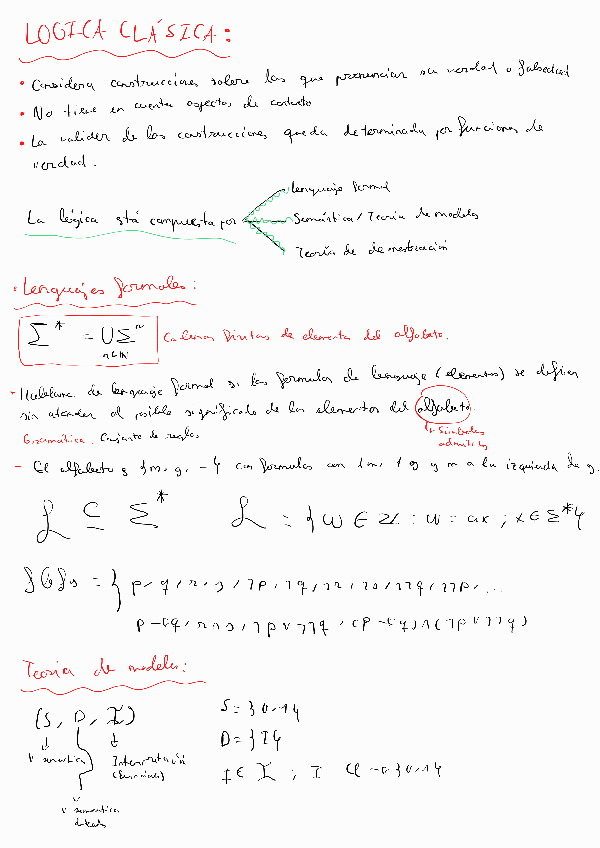 LOGICA CLÁSICA:
• Considera construcciones sobre las que pronunciar su verdad o falsedad
• No tiene en cuenta aspectos de contexto
• La validez de las construcciones queda determinada por funciones de
verdad.
Lenguaje formal
La lógica stá compuesta por
Semántica / Teoría de modelos
Teoría de demostración
• Lenguajes formales:
Σ* = ∪Σⁿ
n∈ℕ
Cadenas finitas de elementos del alfabeto.
- Hablamos de lenguaje formal si las formulas de lenguaje (elementos) se definen
sin atender al posible significado de los elementos del alfabeto.
Gramática. Conjunto de reglas
Simbolos
admitidos
- El alfabeto {m, g, -} con formulas con 1 m, 1 g y m a la izquierda de g.
L ⊆ Σ*
L = {w ∈ : w = ax ; x ∈ Σ*}
= { p, q, r, s, ¬p, ¬q, ¬r, ¬s, ¬¬q, ¬¬p, ...
p→q, r∧s, ¬p∨¬¬q, (p→q)∧(¬p∨¬¬q)
Teoria de modelos:
(S, D, I)
S = {0,1}
D = {1}
I ∈ I ; I → {0,1}
semántica
Interpretación
(funciones)
semántica